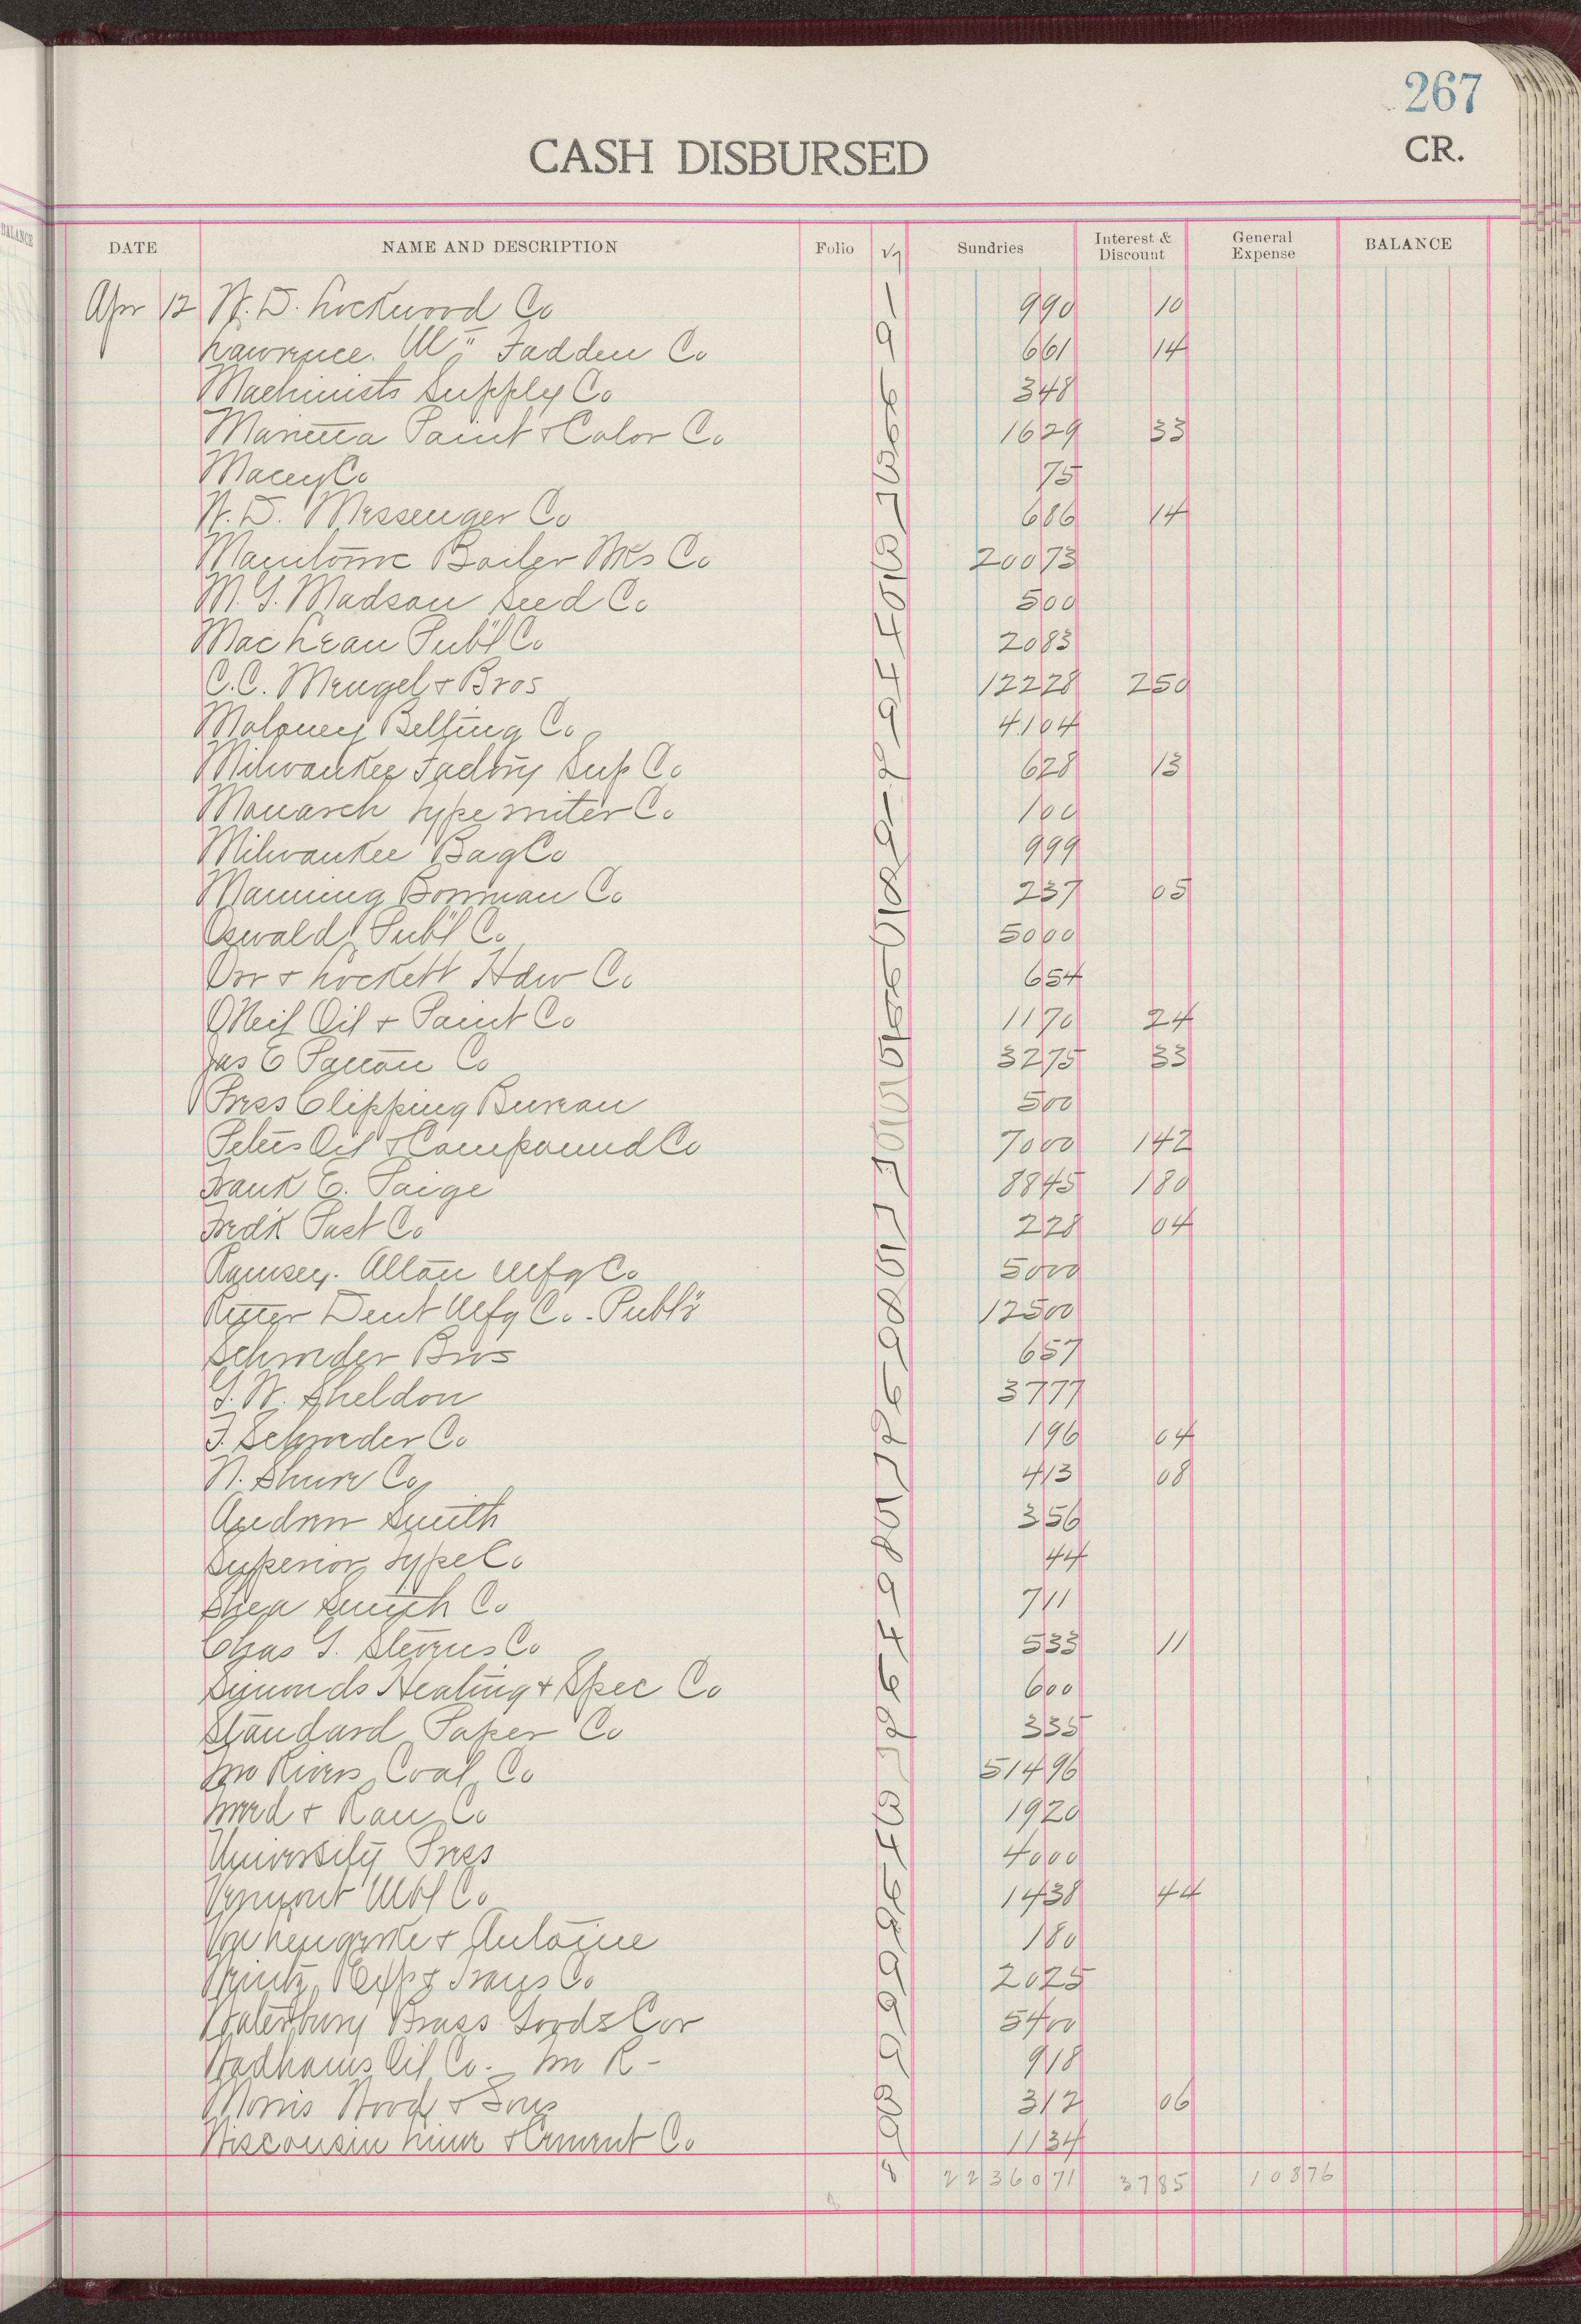 267
CASH DISBURSED CR.
BALANCE
DATE NAME AND DESCRIPTION Folio Sundries Interest & Discount General Expense BALANCE
Apr 12 W. D. Lockwood Co 990 10
Lawrence. Mc Fadden Co 661 14
Machinists Supply Co 348
Marietta Paint & Color Co 1629 33
Macey Co 75
W. D. Messenger Co 686 14
Manitowoc Boiler Wks Co 20073
M. G. Madson Seed Co 500
MacLean Publ Co 2083
C.C. Mengel & Bros 12228 250
Moloney Belting Co 4104
Milwaukee Factory Sup Co 628 13
Monarch Typewriter Co 100
Milwaukee Bag Co 999
Manning Bowman Co 237 05
Oswald Publ Co 5000
Orr & Lockett Hdw Co 654
ONeil Oil & Paint Co 1170 24
Jas E Patton Co 3275 33
Press Clipping Bureau 500
Peters Oil & Compound Co 7000 142
Frank E. Paige 8845 180
Fredk Post Co 228 04
Ramsey. Alton Mfg Co 5000
Ritter Dent Mfg Co. Publ'r 12500
Schroeder Bros 657
G. W. Sheldon 3777
J. Schroeder Co 196 04
N. Shure Co 413 08
Andrew Smith 356
Superior Type Co 44
Shea Smith Co 711
Chas G. Stevens Co 533 11
Symonds Heating & Spec Co 600
Standard Paper Co 335
Two Rivers Coal Co 51496
Co 1920
University Press 4000
Vermont Co 1438 44
& Antoine 180
& Trans Co 2025
Waterbury Brass Goods Cor 5400
Wadhams Oil Co. Two R - 918
Morris Wood & Sons 312 06
Wisconsin Lime & Cement Co 1134
2236071 3785 10876